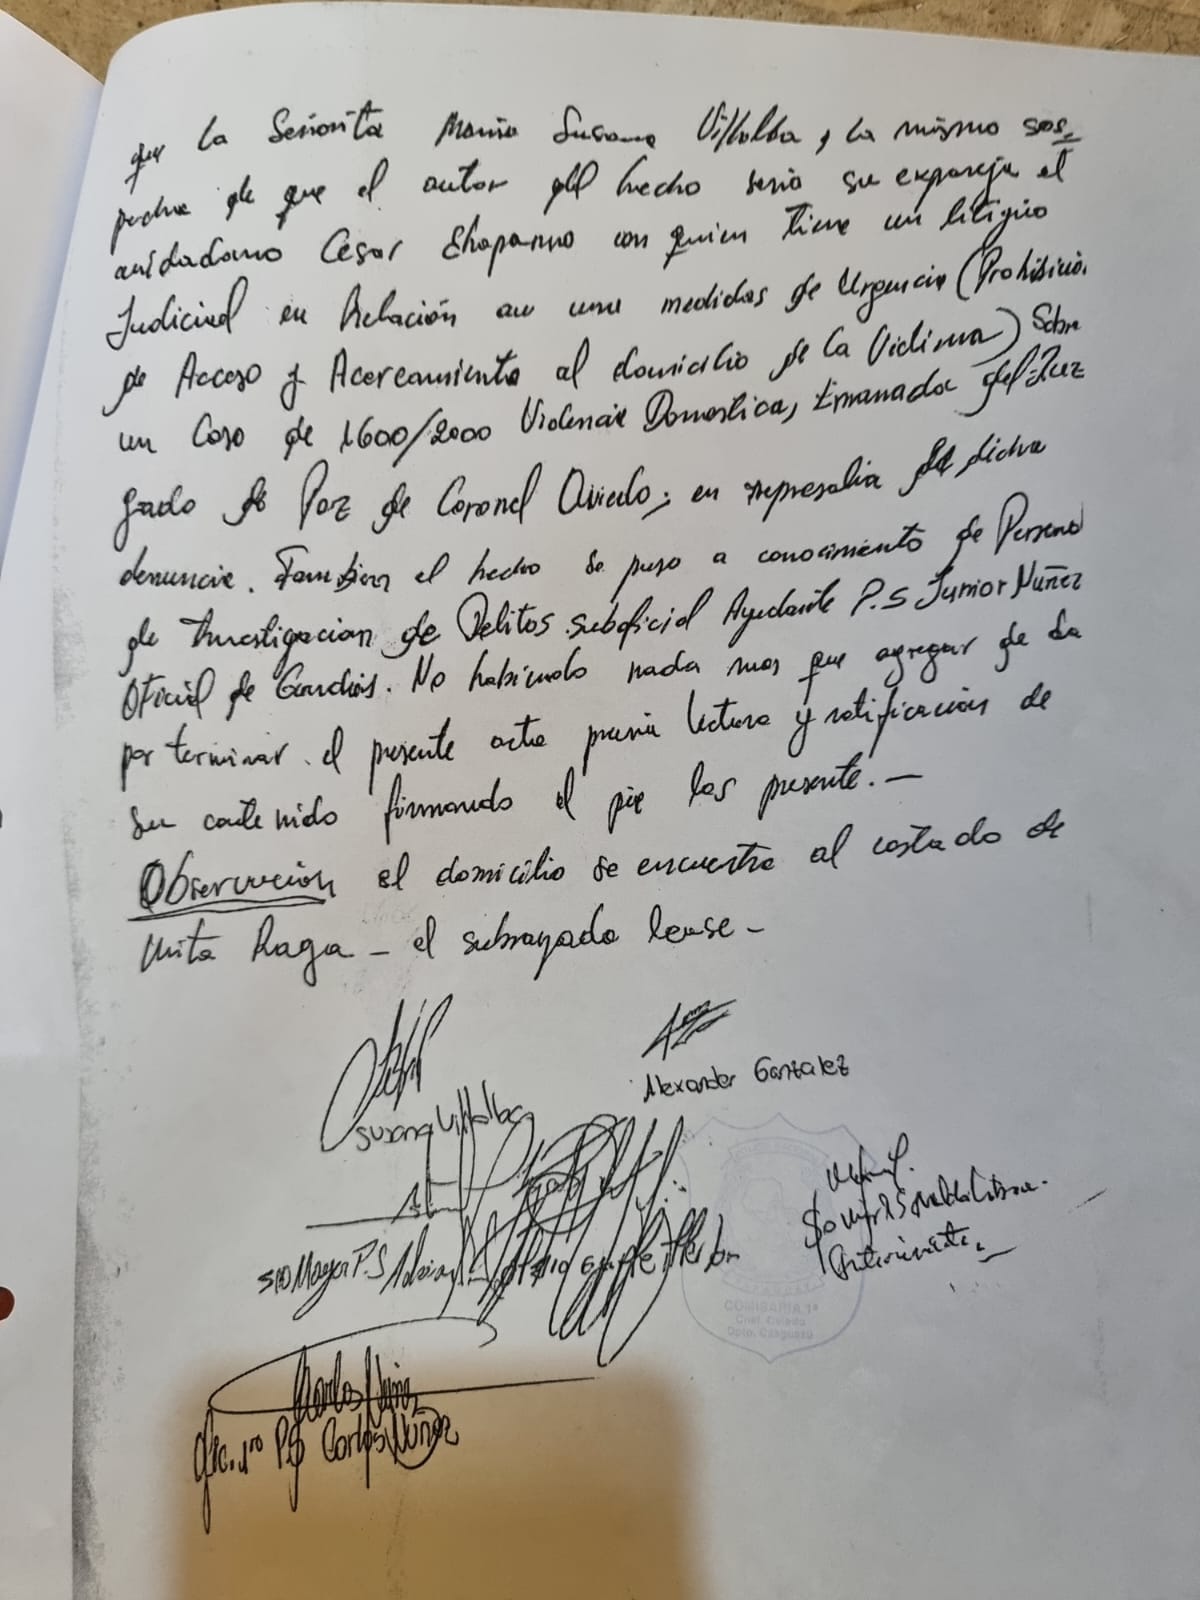 que la Señorita Maria Susana Villalba, la mismo sos-
pecha de que el autor del hecho seria su expareja el
ciudadano Cesar Chaparro con quien tiene un litigio
Judicial en Relación a una medidas de Urgencia (Prohibición
de Acceso y Acercamiento al domicilio de la Victima) Sobre
un Caso de 1600/2000 Violencia Domestica, Emanada del Juz
gado de Paz de Coronel Oviedo; en represalia de dicha
denuncia. Tambien el hecho se puso a conocimiento de Personal
de Investigacion de Delitos suboficial Ayudante P.S Junior Nuñez
Oficial de Guardias. No habiendo nada mas que agregar de da
por terminar el presente acta previa lectura y ratificación de
su contenido firmando el pie los presente. —
Observacion el domicilio se encuentra al costado de
Mita Raga - el subrayado lease -
Alexander Gonzalez
Susana Villalba
SO Mayor P.S
COMISARIA 1ª
Cnel. Oviedo
Dpto. Caaguazú
Carlos Nuñez
Ofic. 1ro PS Carlos Nuñez